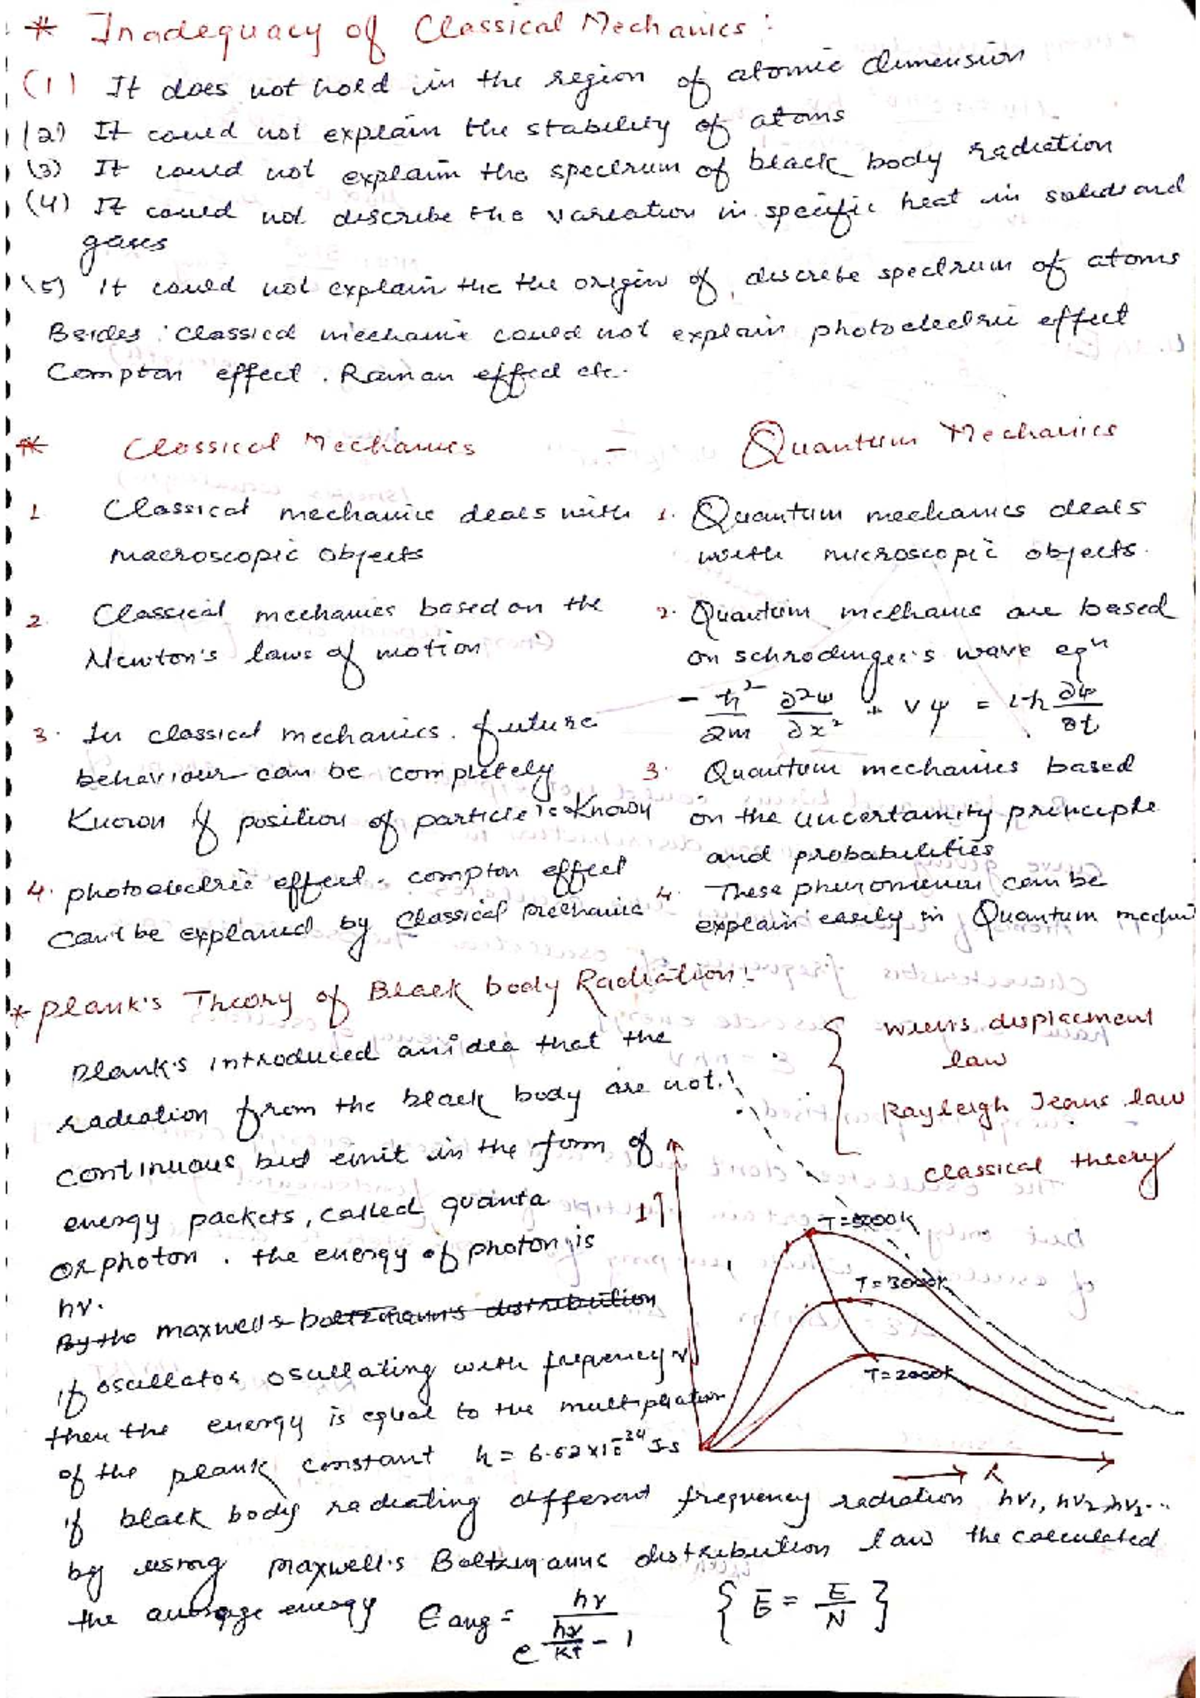 * Inadequacy of Classical Mechanics :
(1) It does not hold in the region of atomic dimension
(2) It could not explain the stability of atoms
(3) It could not explaim the spectrum of black body radiation
(4) It could not describe the variation in specific heat in solids and
gases
(5) it could not explain the the origin of discrete spectrum of atoms
Besides : classical mechanic could not explain photoelectric effect
Compton effect . Raman effect etc.
* Classical Mechanics - Quantum Mechanics
1. Classical mechanic deals with
macroscopic objects
1. Quantum mechanics deals
with microscopic objects.
2. Classical mechanics based on the
Newton's laws of motion
2. Quantum mechanics are based
on schrodinger's wave eqn
- ħ²/2m ∂²ψ/∂x² + vψ = iħ ∂ψ/∂t
3. In classical mechanics. future
behaviour can be completely
Known if position of particle is Known
3. Quantum mechanics based
on the uncertainity principle
and probabilities
4. photoelectric effect. compton effect
can't be explained by Classical mechanic
4. These phenomenon can be
explain easily in Quantum
* plank's Theory of Black body Radiation :
plank's introduced an idea that the
radiation from the black body are not.
continuous but emit in the form of
energy packets, called quanta
or photon . the energy of photon is
hν.
By the maxwell's boltzmann's distribution
if oscillator oscillating with frequency ν
then the energy is equal to the multiplication
of the plank constant h = 6.62×10⁻³⁴ J-s
{ wien's displacment
law
Rayleigh Jeans law
classical theory
I↑
T=5200k
T=3000k
T=2000k
→ λ
if black body radiating different frequency radiation hν₁, hν₂, hν₃...
by using maxwell's Boltzmanns distribution law the calculated
the average energy E avg = hν / e^(hν/kT) - 1 { Ē = E/N }